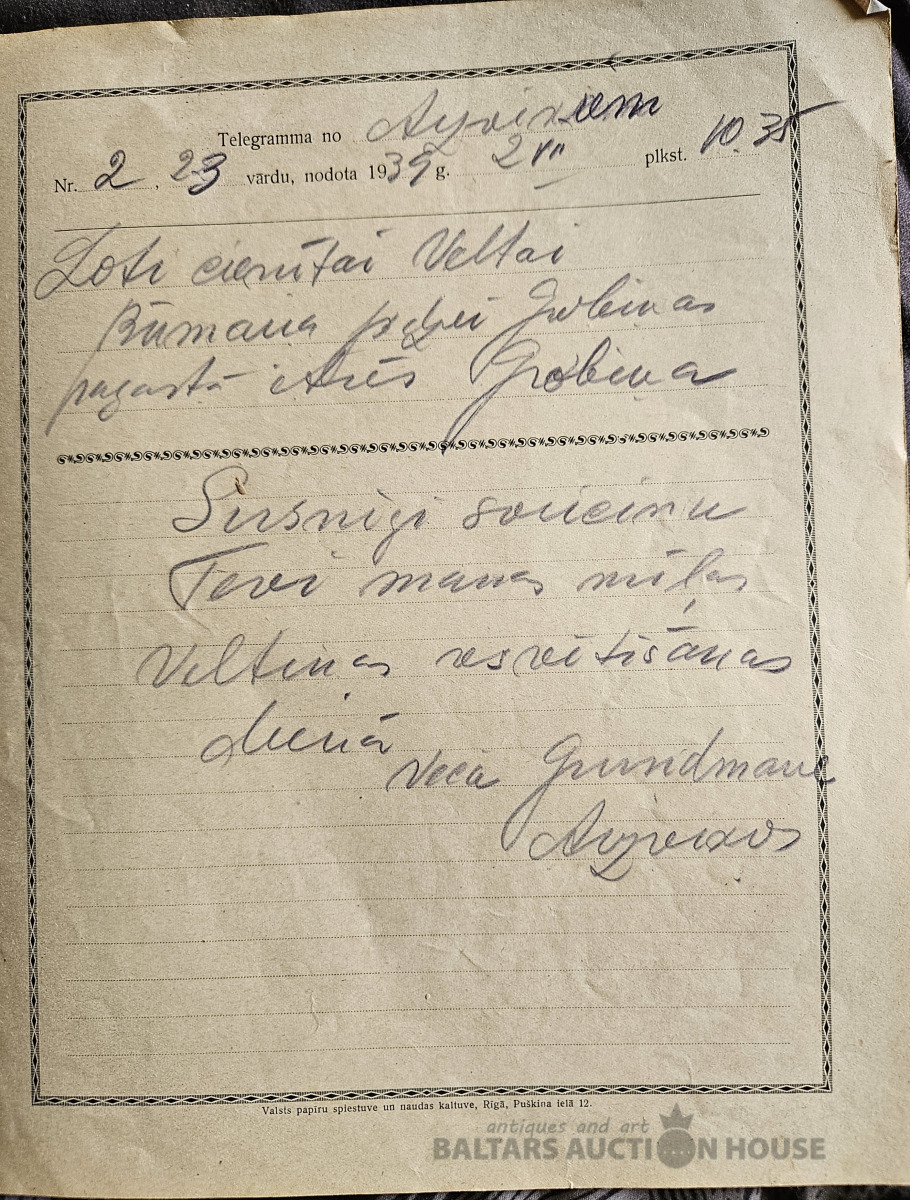 Telegramma no Ayvixiem
Nr. 2, 23 vārdu, nodota 1939 g. 2 VII plkst. 10.35
Ļoti cienītai Veltai
kdzei Grobiņas
pagastā Grobiņa
Sirsnīgi sveicinu
Tevi manas mīļas
Veltiņas iesvētīšanas
dienā
Veca Grundmane
Valsts papīru spiestuve un naudas kaltuve, Rīgā, Puškina ielā 12.
antiques and art
BALTARS AUCTION HOUSE